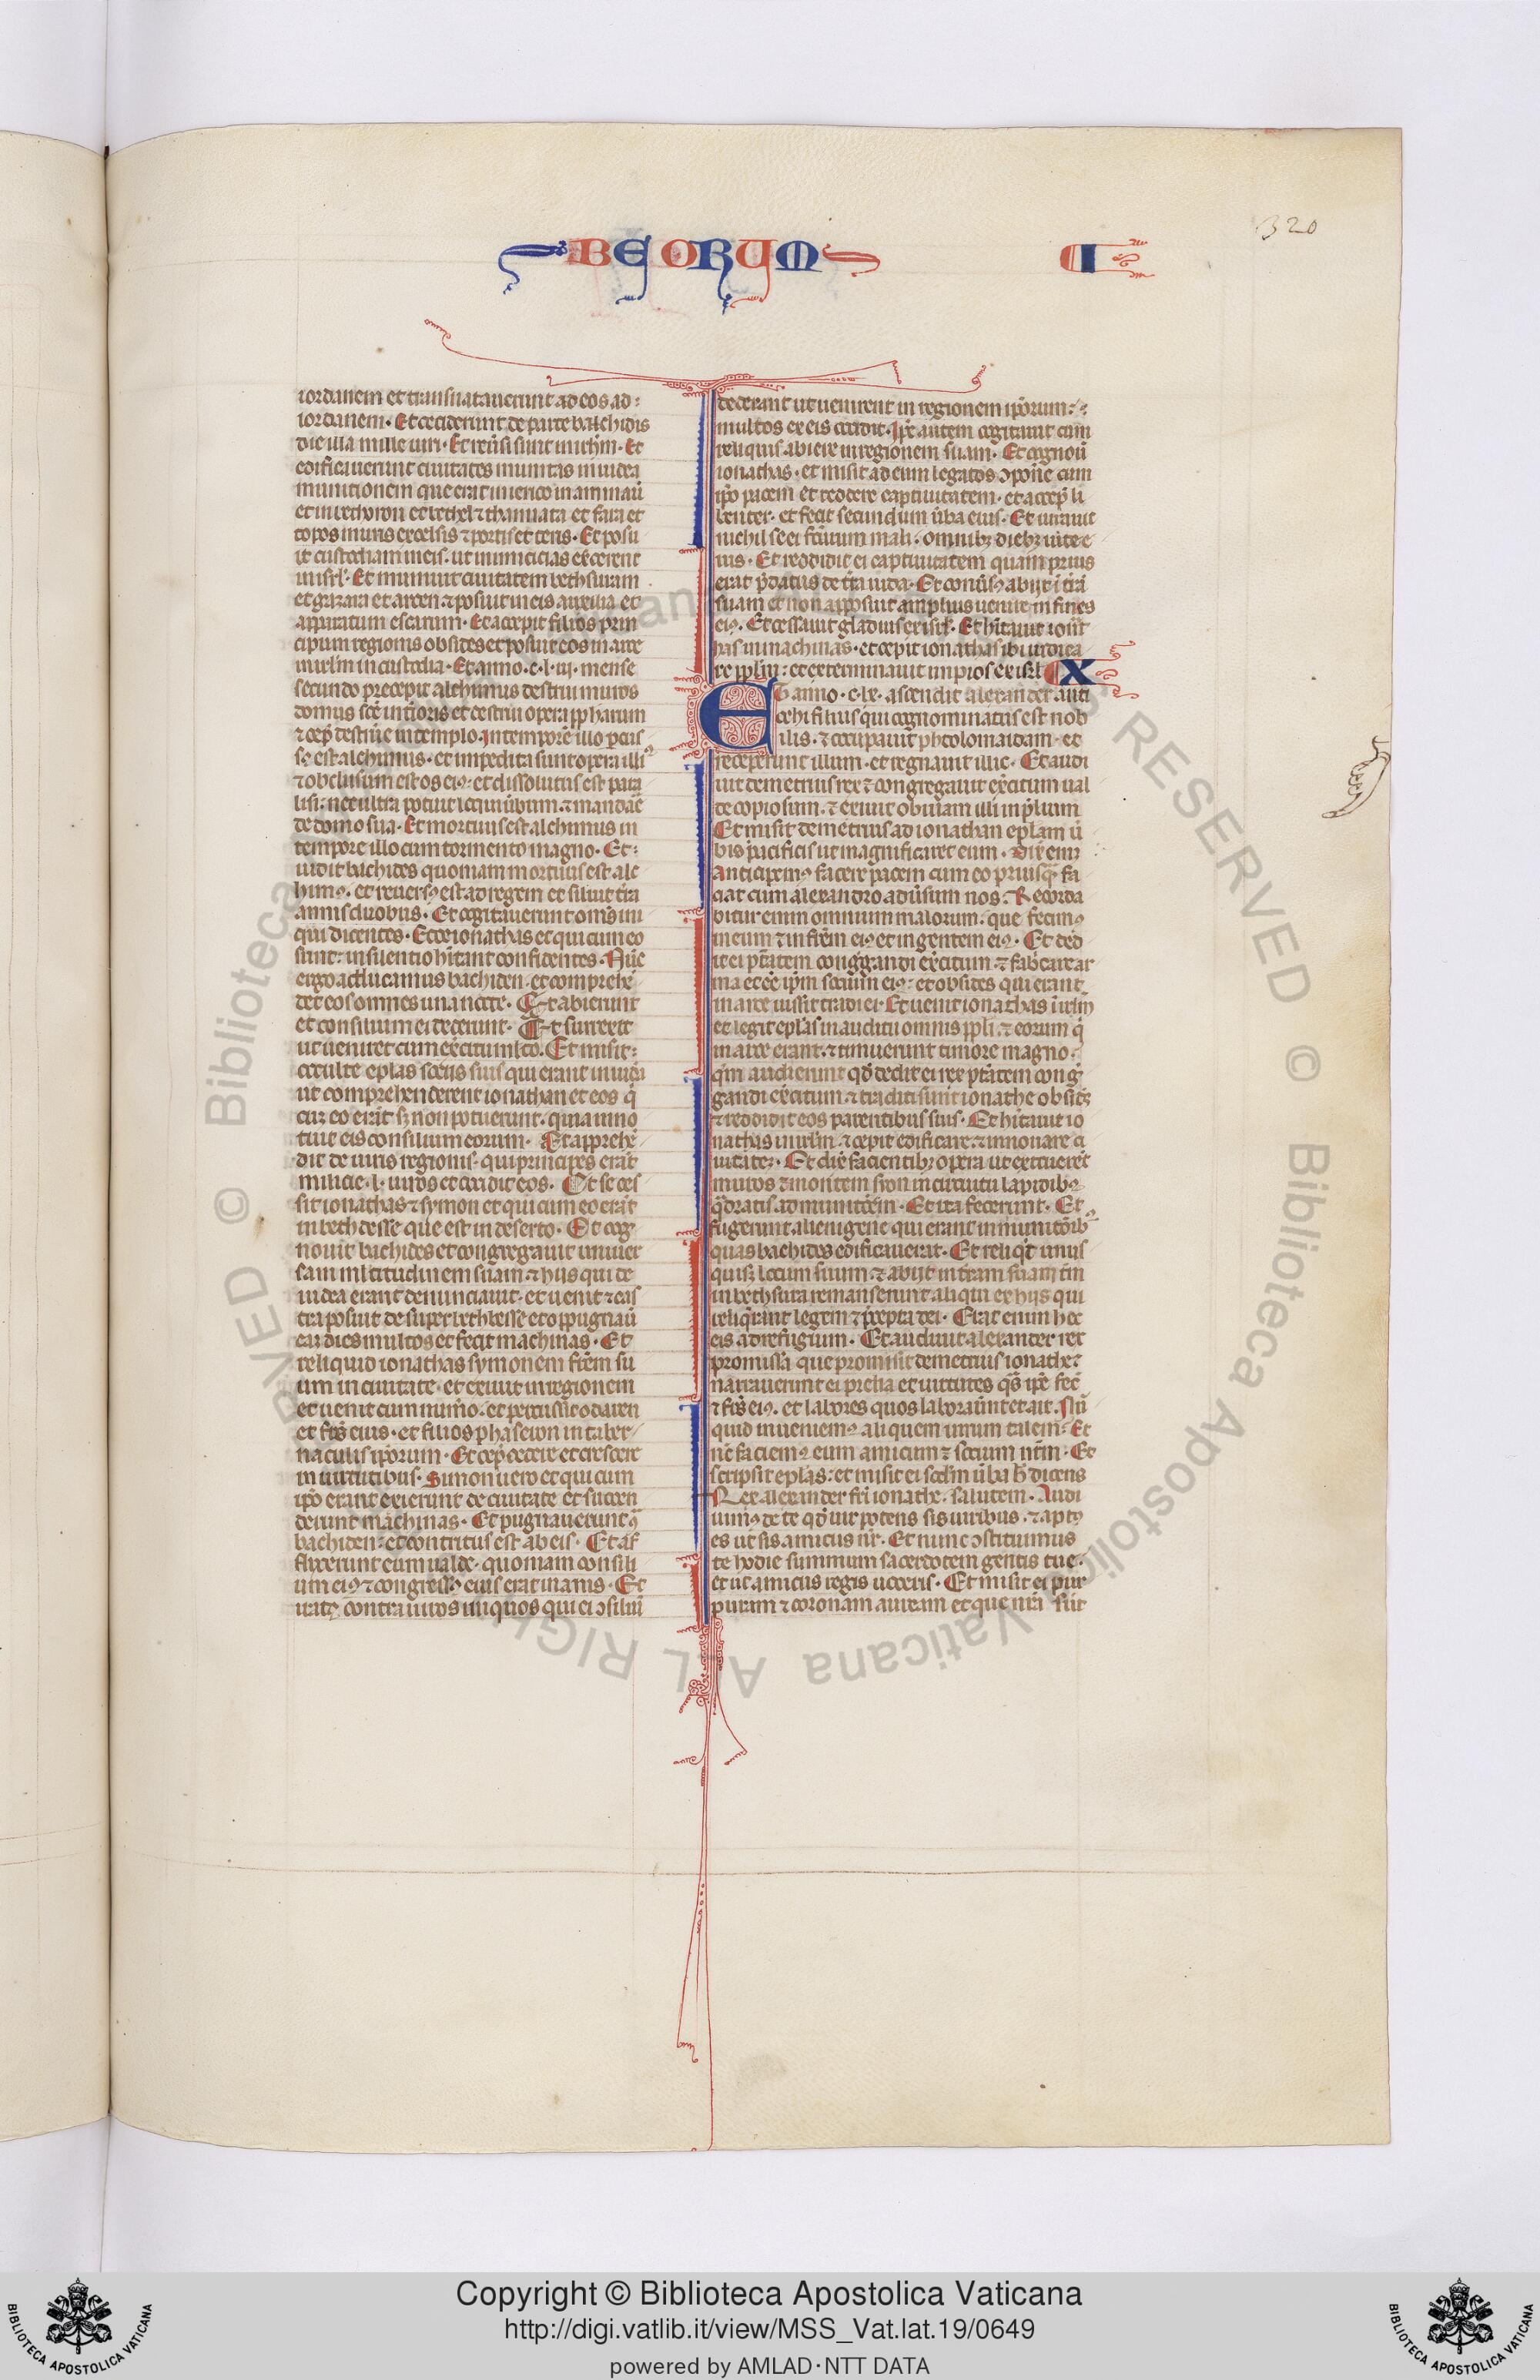 BEORUM
I
320
iordanem et transnatauerunt ad eos ad:
iordanem. Et ceciderunt de parte bachidis
die illa mille uiri. Et reũsi sunt in irlm̃. Et
edificauerunt ciuitates munitas in iudea
munitionem que erat in ierico in ammaũ
et in bethoron et bethel ⁊ thamnata et fara et
topos muris excelsis ⁊ portis et seris. Et posu
it custodiam in eis. ut inimicicias exercerent
in isrl̃. Et muniuit ciuitatem bethsuram
et gazara et arcen ⁊ posuit in eis auxilia et
apparatum escarum. Et accepit filios prin
cipum regionis obsides et posuit eos in arce
in irlm̃ in custodia. Et anno .c.l.iii. mense
secundo precepit alchimus destrui muros
domus sc̃e inťioris et destrui opera ꝓpharum
⁊ cep̃ destrůe in templo. In tempore illo ꝑcus
se est alchimus. et impedita sunt opera illiꝰ
⁊ obclusum est os eiꝰ. et dissolutus est para
lisi. nec ultra potuit loqui ůbum. ⁊ mandar̃
de domo sua. Et mortuus est alchimus in
tempore illo cum tormento magno. Et:
uidit bachides quoniam mortuus est alc
himꝰ. et reuersꝰ est ad regem et siluit tr̃a
annis duobus. Et cogitauerunt om̃s ini
qui dicentes. Ecce ionathas et qui cum eo
sunt: in silentio hĩtant confidentes. Nũc
ergo adducamus bachiden. et comprehẽ
det eos omnes una nocte. Et abierunt
et consilium ei dederunt. Et surrexit
ut ueniret cum exercitu ml̃to. Et misit:
occulte epl̃as sociis suis qui erant in iudea
ut comprehenderent ionathan et eos q̃
cuꝫ eo erãt sꝫ non potuerunt. quia inno
tuit eis consilium eorum. Et apprehẽ
dit de uiris regionis. qui principes erãt
milicie .l. uiros et occidit eos. Et seces
sit ionathas ⁊ symon et qui cum eo erãt
in bethbesse que est in deserto. Et cog
nouit bachides et congregauit uniuer
sam ml̃titudinem suam. ⁊ hiis qui de
iudea erant denunciauit. et uenit ⁊ cas
tra posuit desuper bethbesse et oppugnaũ
eaꝫ dies multos et fecit machinas. Et
reliquid ionathas symonem fr̃em su
um in ciuitate. et exiuit in regionem
et uenit cum num̃o. et percussit odaren
et fr̃s eius. et filios phaseron in taber
naculis ip̃orum. Et cep̃ cedere et crescere
in uirtutibus. Simon uero et qui cum
ip̃o erant exierunt de ciuitate et succen
derunt machinas. Et pugnauerunt ↄ̃
bachiden. et contritus est ab eis. Et af
flixerunt eum ualde. quoniam consili
um eiꝰ ⁊ congressꝰ eius erat inanis. Et
iratꝰ contra uiros iniquos qui ei ↄsiliũ
dederant ut uenirent in regionem ip̃orum:
multos ex eis occidit. Ip̃e autem cogitauit cum
reliquis abiere in regionem suam. Et cognouit
ionathas. et misit ad eum legatos ↄpoñe cum
ip̃o pacem et reddere captiuitatem. et accep̃ li
benter. et fecit secundum ůba eius. Et iurauit
nichil se ei fctũrum mali. omnibꝫ diebꝫ uite e
ius. Et reddidit ei captiuitatem quam prius
erat p̃datus de tr̃a iuda. Et conůsꝰ abijt ĩ tr̃ã
suam et non apposuit amplius uenire in fines
eiꝰ. Et cessauit gladius ex isrl̃. Et hĩtauit iont̃
has in machinas. et cepit ionathas ibi iudica
re pplm̃: et exterminauit impios ex isrl̃ X
Et anno .c.lx. ascendit alexander. anti
ochi filius qui cognominatus est nob
ilis. ⁊ occupauit ptholomaidam. et
receperunt illum. et regnauit illic. Et audi
uit demetrius rex ⁊ congregauit exercitum ual
de copiosum. ⁊ exiuit obuiam illi in p̃lium
Et misit demetrius ad ionathan epl̃am ů
bis pacificis ut magnificaret eum. Dixit eniꝫ
Anticipemꝰ facere pacem cum eo priusꝗ̃ fa
ciat cum alexandro aduůsum nos. Recorda
bitur enim omnium malorum. que fecimꝰ
in eum ⁊ in fr̃em eiꝰ et in gentem eiꝰ. Et ded
it ei pt̃atem congg̃andi exercitum. ⁊ fabricare ar
ma et eẽ ip̃m socium eiꝰ. et obsides qui erant
in arce iussit tradi ei. Et uenit ionathas ĩ irlm̃
et legit epl̃as in auditu omnis ppl̃i. ⁊ eorum q̃
in arce erant. ⁊ timuerunt timore magno.
qm̃ audierunt qð dedit ei rex pt̃atem cong̃
gandi exercitum. ⁊ traditi sunt ionathe obsid̃ꝫ
⁊ reddidit eos parentibus suis. Et hĩtauit io
nathas in irlm̃. ⁊ cepit edificare. ⁊ innouare ci
uitateꝫ. Et dix̃ facientibꝫ opera ut extruerẽt
muros ⁊ montem sion in circuitu lapidibꝰ
q̃dratis. ad munitõem. Et ita fecerunt. Et
fugerunt alienigene qui erant in munitõibꝰ
quas bachides edificauerat. Et reliqt̃ unus
quisꝫ locum suum. ⁊ abijt in tr̃am suam tm̃
in bethsura remanserunt aliqui ex hijs qui
reliq̃rant legem ⁊ p̃cepta dei. Erat enim hec
eis ad refugium. Et audiuit alexander rex
promissa que promisit demetrius ionathe.
narrauerunt ei prelia et uirtutes q̃s ip̃e fec̃
⁊ fr̃s eiꝰ. et labores quos laborauůnt et ait. Nũ
quid inueniemꝰ aliquem uirum talem: Et
nc̃ faciemꝰ eum amicum ⁊ socium nr̃m: Et
scripsit epl̃as. et misit ei scďm ůba h̃ dicens
Rex alexander fr̃i ionathe. salutem. Audi
uimꝰ de te qð uir potens sis uiribus. ⁊ aptꝰ
es ut sis amicus nr̃. Et nunc ↄstituimus
te hodie summum sacerdotem gentis tue.
et ut amicus regis uoceris. Et misit ei pur
puram ⁊ coronam auream et que nr̃a sũt
Copyright © Biblioteca Apostolica Vaticana
http://digi.vatlib.it/view/MSS_Vat.lat.19/0649
powered by AMLAD·NTT DATA